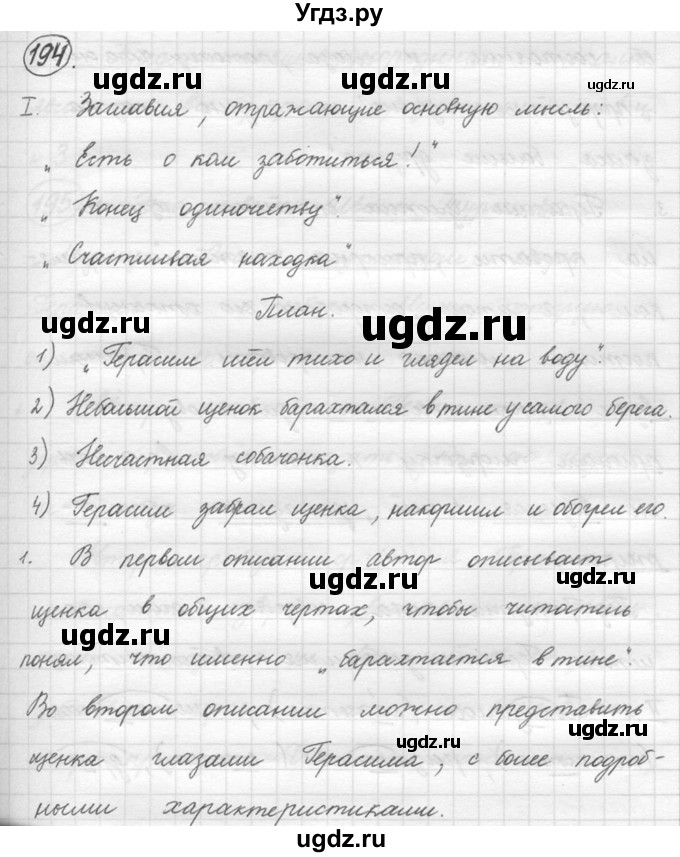 Угдз.ру
194.
ugdz.ru ugdz.ru ugdz.ru
I. Заглавия, отражающие основную мысль:
„Есть о ком заботиться!"
„Конец одиночеству".
„Счастливая находка"
План.
ugdz.ru ugdz.ru
1) „Герасим шёл тихо и глядел на воду".
2) Небольшой щенок барахтался в тине у самого берега.
3) Несчастная собачонка.
4) Герасим забрал щенка, накормил и обогрел его.
1. В первом описании автор описывает
ugdz.ru ugdz.ru
щенка в общих чертах, чтобы читатель
ugdz.ru
понял, что именно „барахтается в тине".
Во втором описании можно представить
ugdz.ru ugdz.ru
щенка глазами Герасима, с более подроб-
ugdz.ru
ными характеристиками.
ugdz.ru